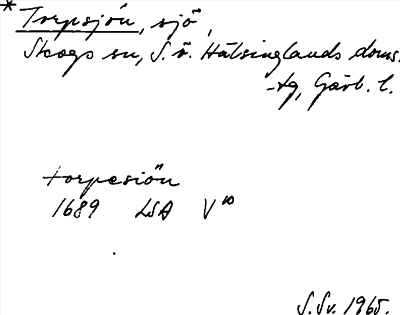 * Torpsjön, sjö,
Skogs sn, S. ö. Hälsinglands doms.
-tg, Gävl. l.
torpesiön
1689 LSA V 10
S. Sv. 1965.